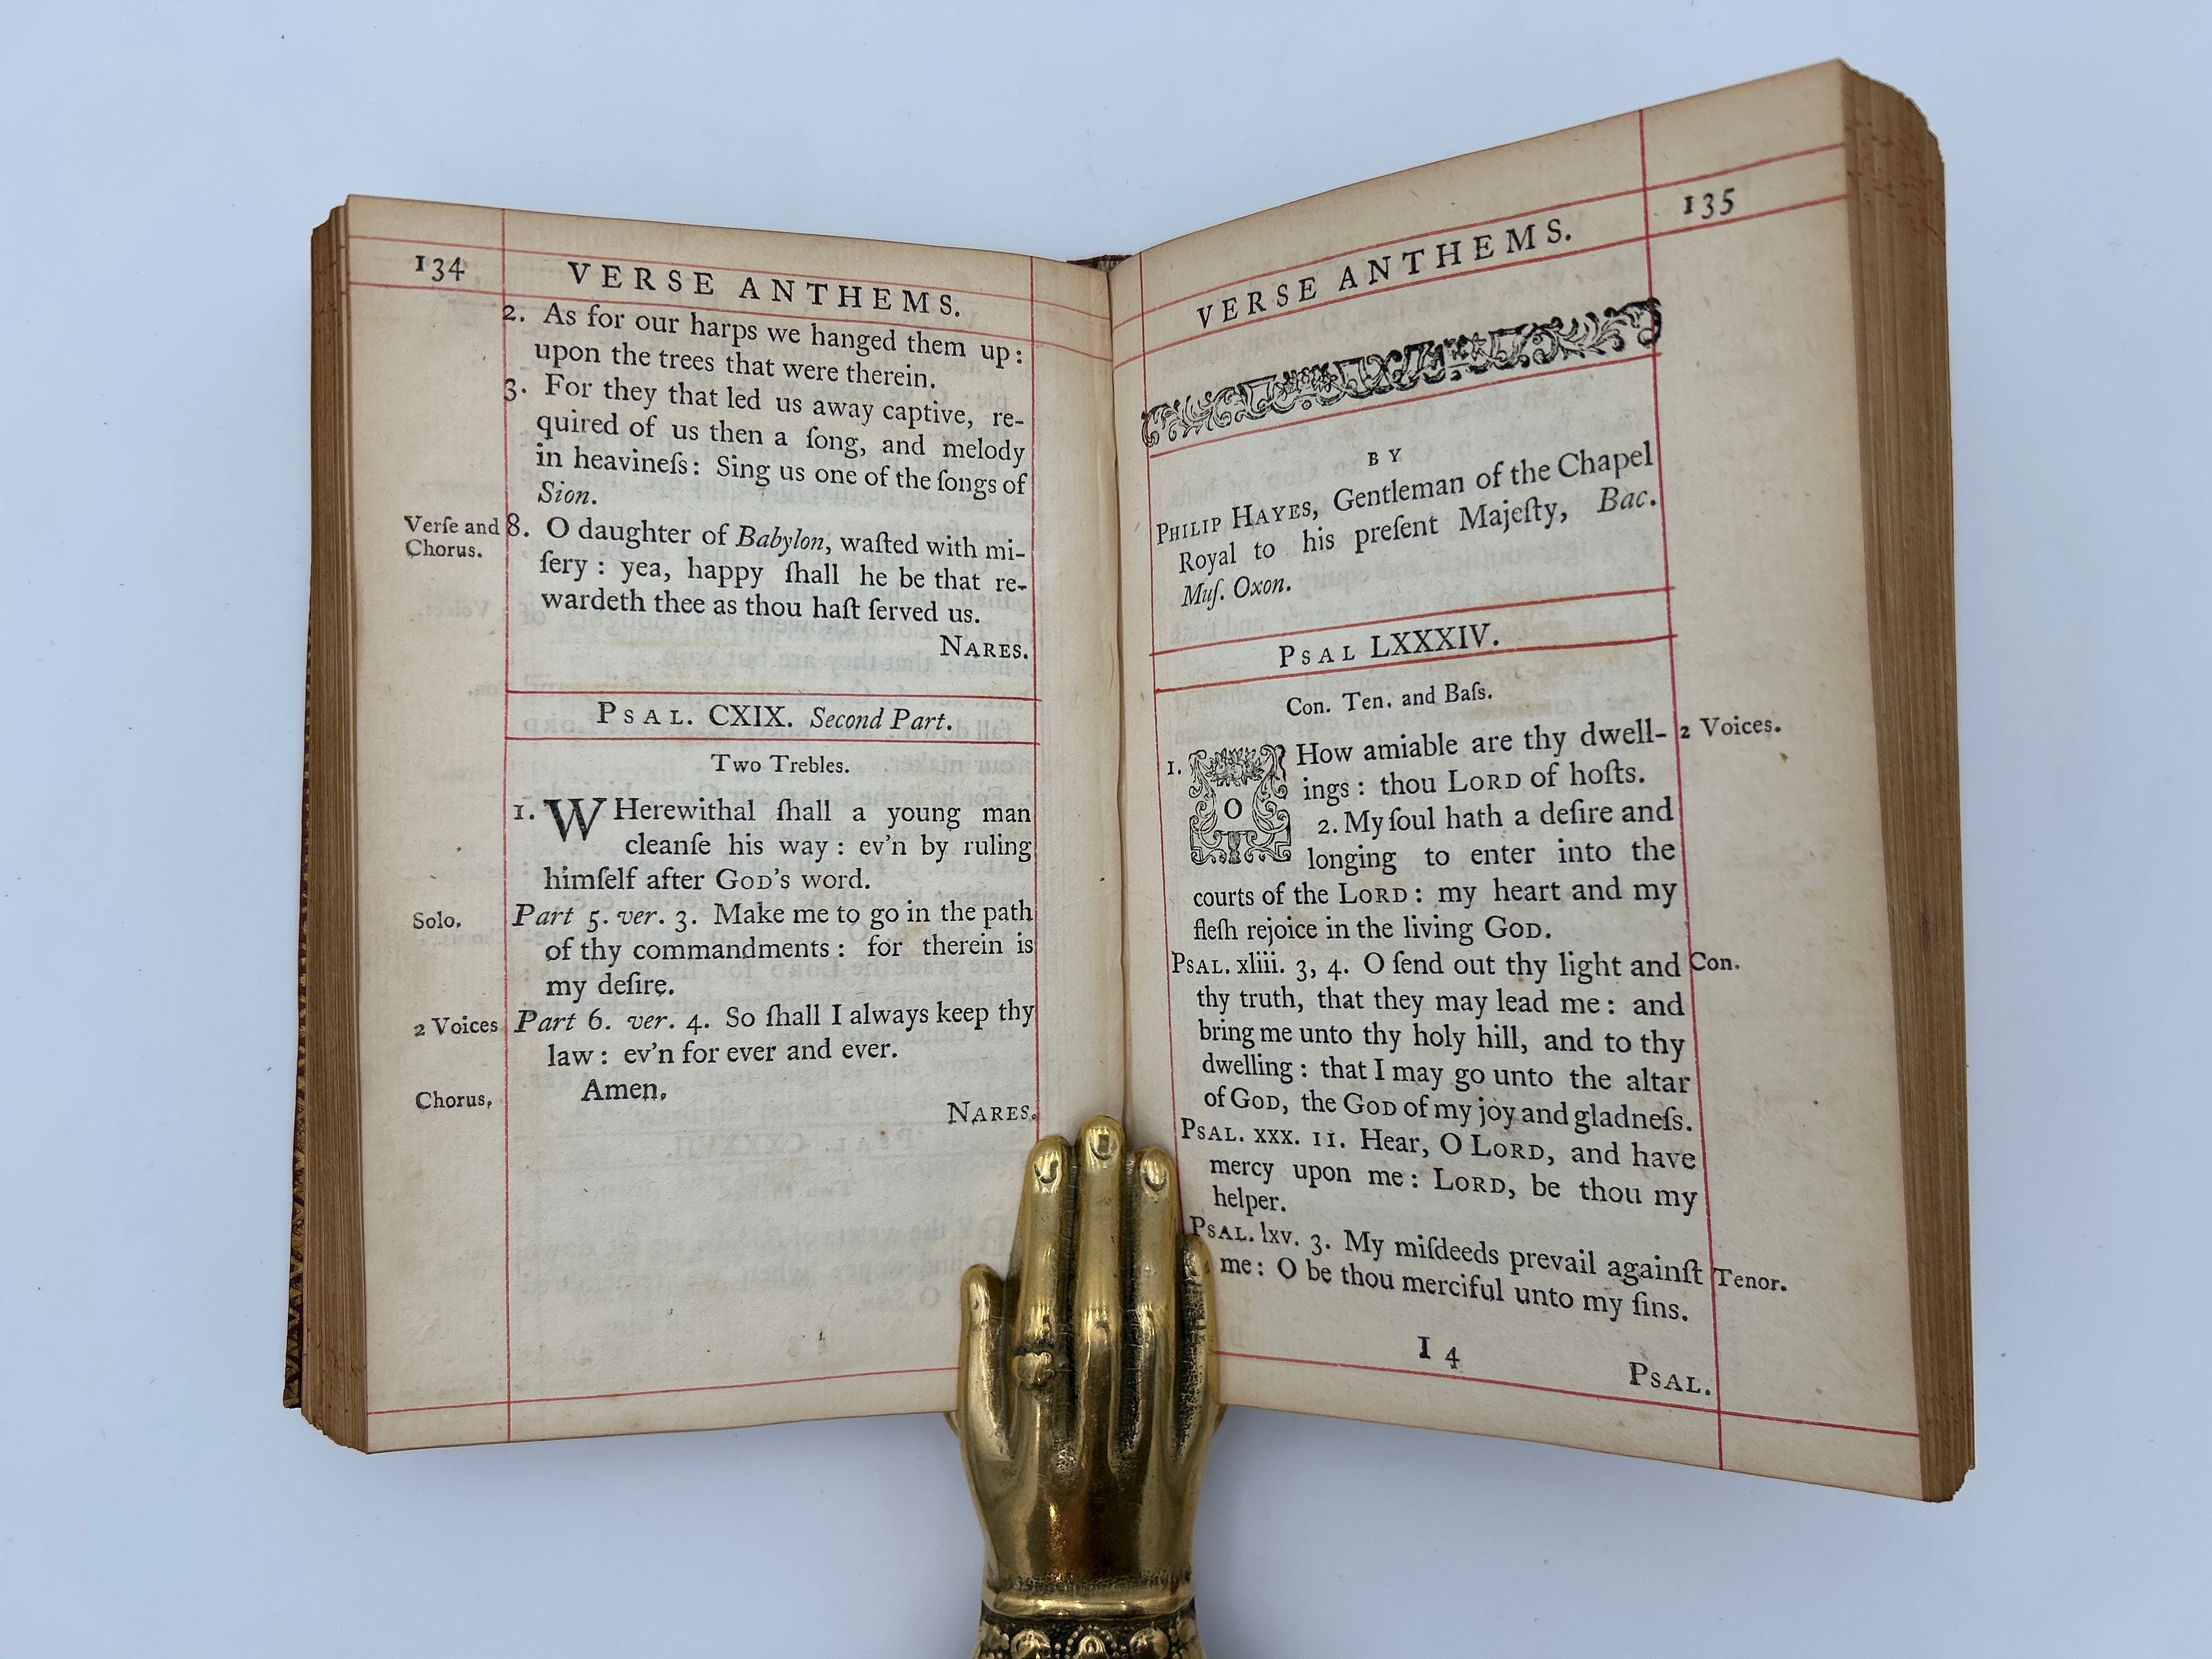 134
VERSE ANTHEMS.
2. As for our harps we hanged them up:
upon the trees that were therein.
3. For they that led us away captive, re-
quired of us then a ſong, and melody
in heavineſs: Sing us one of the ſongs of
Sion.
Verſe and 8. O daughter of Babylon, waſted with mi-
Chorus.
ſery: yea, happy ſhall he be that re-
wardeth thee as thou haſt ſerved us.
NARES.
PSAL. CXIX. Second Part.
Two Trebles.
1. WHerewithal ſhall a young man
cleanſe his way: ev'n by ruling
himſelf after GOD's word.
Solo. Part 5. ver. 3. Make me to go in the path
of thy commandments: for therein is
my deſire.
2 Voices Part 6. ver. 4. So ſhall I always keep thy
law: ev'n for ever and ever.
Chorus. Amen.
NARES.
135
VERSE ANTHEMS.
BY
PHILIP HAYES, Gentleman of the Chapel
Royal to his preſent Majeſty, Bac.
Muſ. Oxon.
PSAL LXXXIV.
Con. Ten. and Baſs.
1. O How amiable are thy dwell- 2 Voices.
ings: thou LORD of hoſts.
2. My ſoul hath a deſire and
longing to enter into the
courts of the LORD: my heart and my
fleſh rejoice in the living GOD.
PSAL. xliii. 3, 4. O ſend out thy light and Con.
thy truth, that they may lead me: and
bring me unto thy holy hill, and to thy
dwelling: that I may go unto the altar
of GOD, the GOD of my joy and gladneſs.
PSAL. xxx. 11. Hear, O LORD, and have
mercy upon me: LORD, be thou my
helper.
PSAL. lxv. 3. My miſdeeds prevail againſt Tenor.
me: O be thou merciful unto my ſins.
I 4
PSAL.